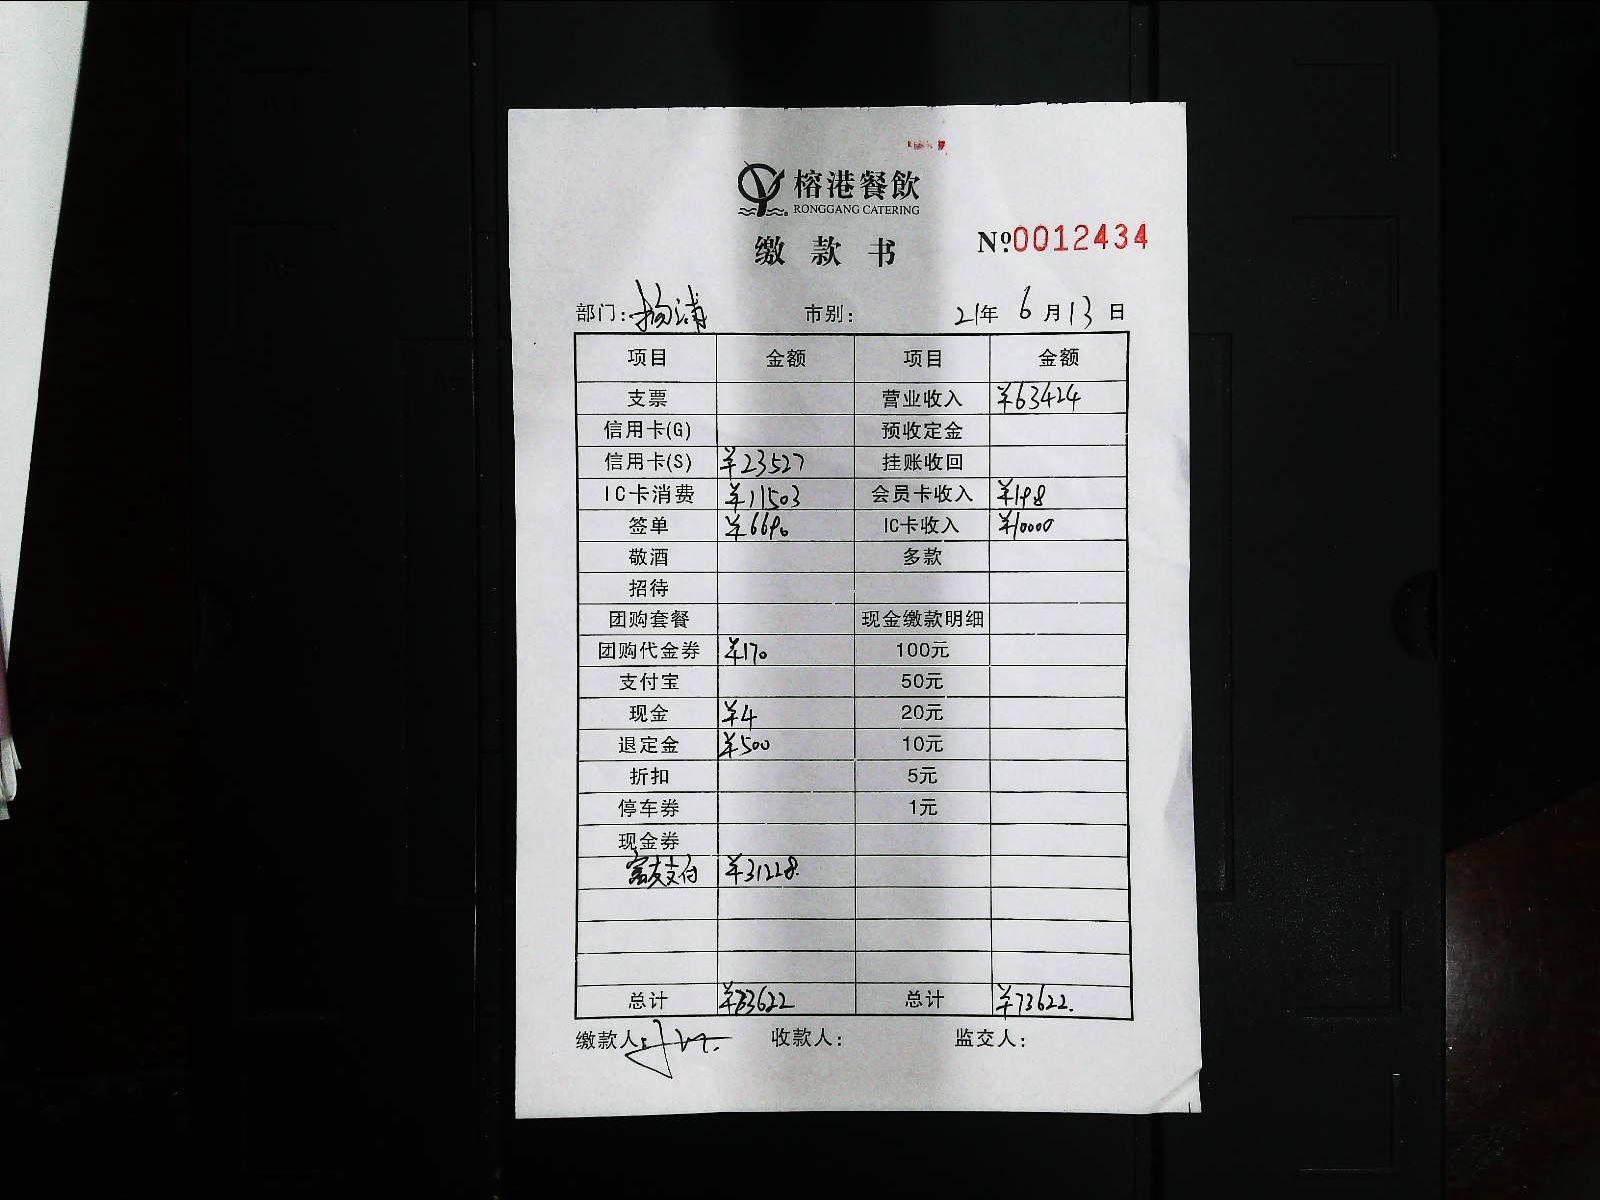 榕港餐飲
RONGGANG CATERING
缴款书
№0012434
部门: 杨浦 市别: 21年 6月13日
项目 金额 项目 金额
支票 营业收入 ¥63424
信用卡(G) 预收定金
信用卡(S) ¥23527 挂账收回
IC卡消费 ¥11503 会员卡收入 ¥198
签单 ¥6690 IC卡收入 ¥10000
敬酒 多款
招待
团购套餐 现金缴款明细
团购代金券 ¥170 100元
支付宝 50元
现金 ¥4 20元
退定金 ¥500 10元
折扣 5元
停车券 1元
现金券
富友支付 ¥31228.
总计 ¥73622 总计 ¥73622.
缴款人: 收款人: 监交人: